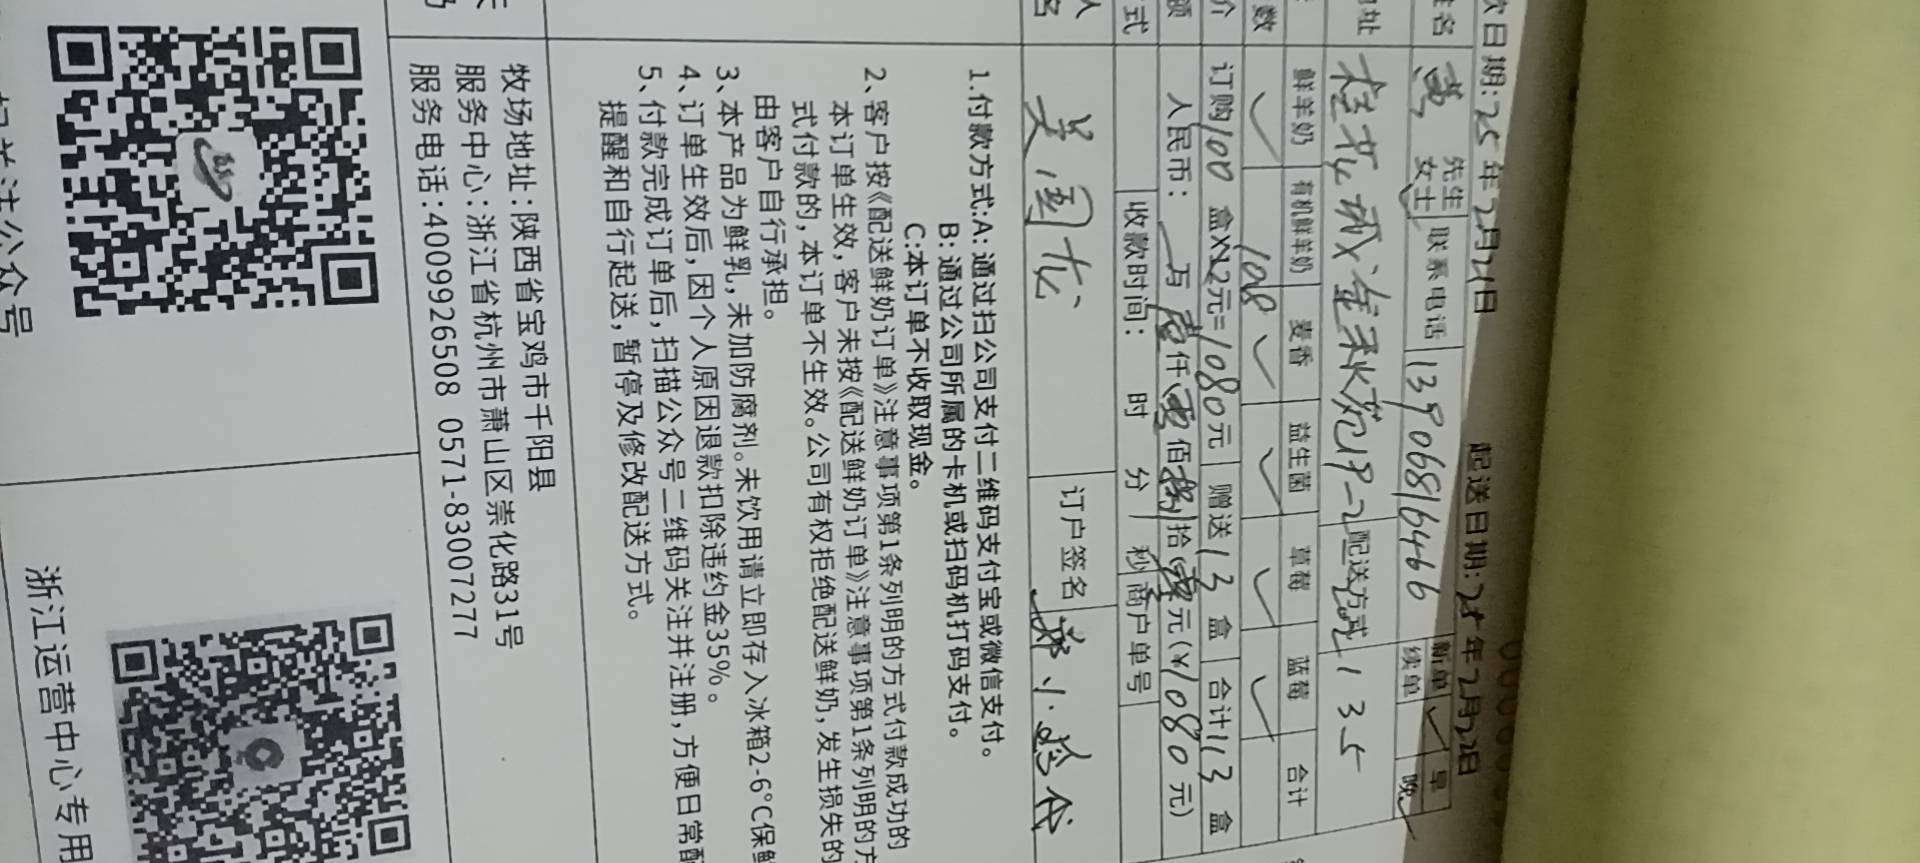 次日期:25年2月21日 起送日期:25年2月22日
姓名 黄 先生 女士 联系电话 13906816466 新单 ✓ 早
续单 晚 ✓
地址 桂花城 2 配送方式 135
鲜羊奶 有机鲜羊奶 麦香 益生菌 草莓 蓝莓 合计
数 ✓ 108 ✓ ✓ ✓ ✓
价 订购100 盒X12元=1080元 赠送13 盒 合计113 盒
额 人民币: 万 壹仟零佰捌拾零元(¥1080元)
式 收款时间: 时 分 秒 商户单号
人
名 吴国龙 订户签名
1.付款方式:A:通过扫公司支付二维码支付宝或微信支付。
B:通过公司所属的卡机或扫码机打码支付。
C:本订单不收取现金。
2、客户按《配送鲜奶订单》注意事项第1条列明的方式付款成功的
本订单生效,客户未按《配送鲜奶订单》注意事项第1条列明的方
式付款的,本订单不生效。公司有权拒绝配送鲜奶,发生损失的
由客户自行承担。
3、本产品为鲜乳,未加防腐剂。未饮用请立即存入冰箱2-6°C保鲜
4、订单生效后,因个人原因退款扣除违约金35%。
5、付款完成订单后,扫描公众号二维码关注并注册,方便日常配
提醒和自行起送,暂停及修改配送方式。
牧场地址:陕西省宝鸡市千阳县
服务中心:浙江省杭州市萧山区崇化路31号
服务电话:4009926508 0571-83007277
扫关注公众号
浙江运营中心专用